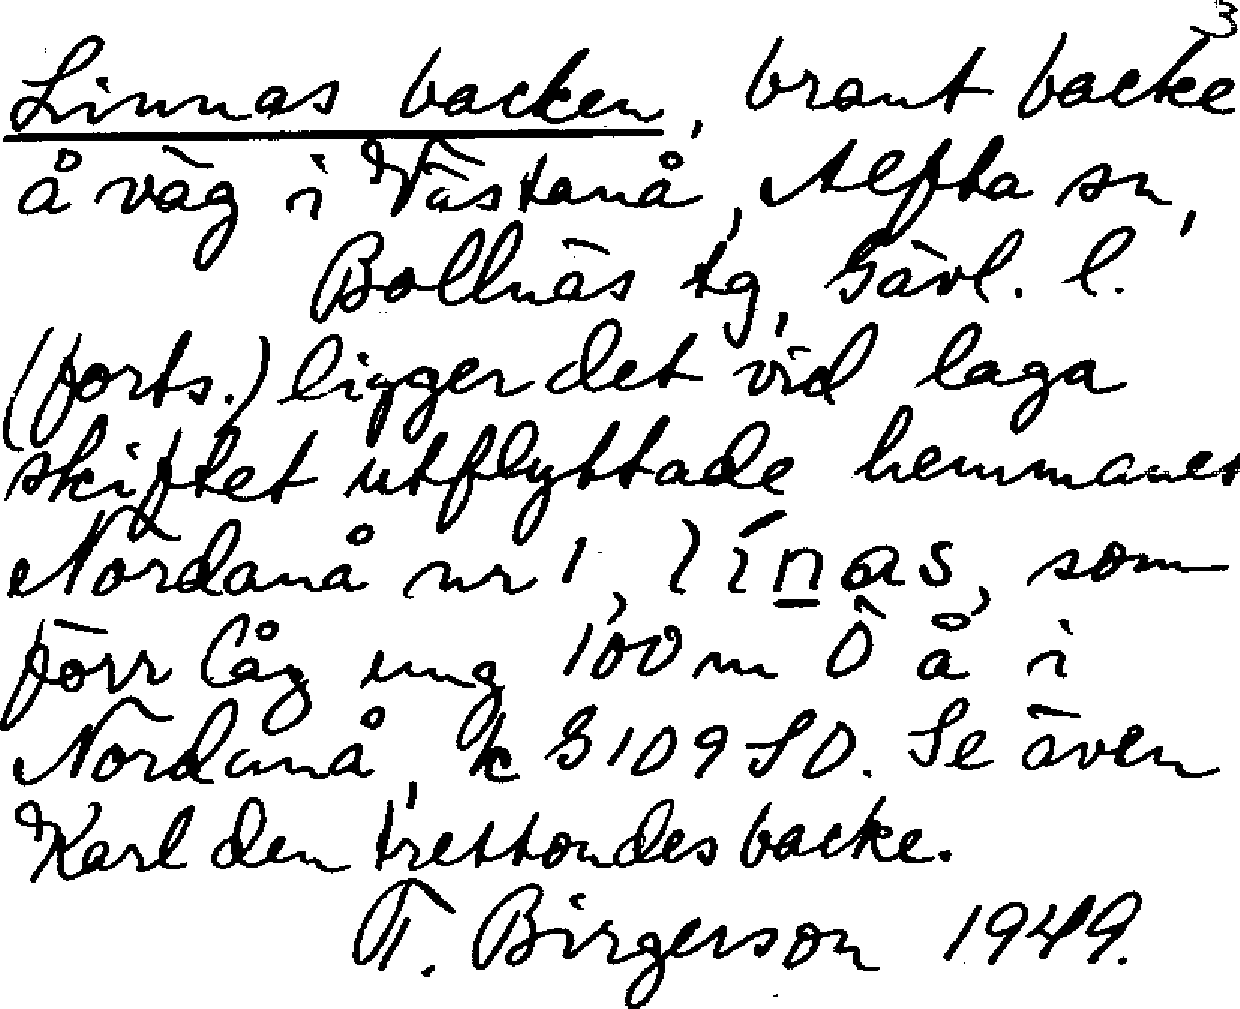 3
Linnas backen, brant backe
å väg i Västanå, Alfta sn,
Bollnäs tg, Gävl. l.
(forts.) ligger det vid laga
skiftet utflyttade hemmanet
Nordanå nr 1, línas, som
förr låg ung 100 m Ö å i
Nordanå, k G109SO. Se även
Karl den trettondes backe.
T. Birgerson 1949.